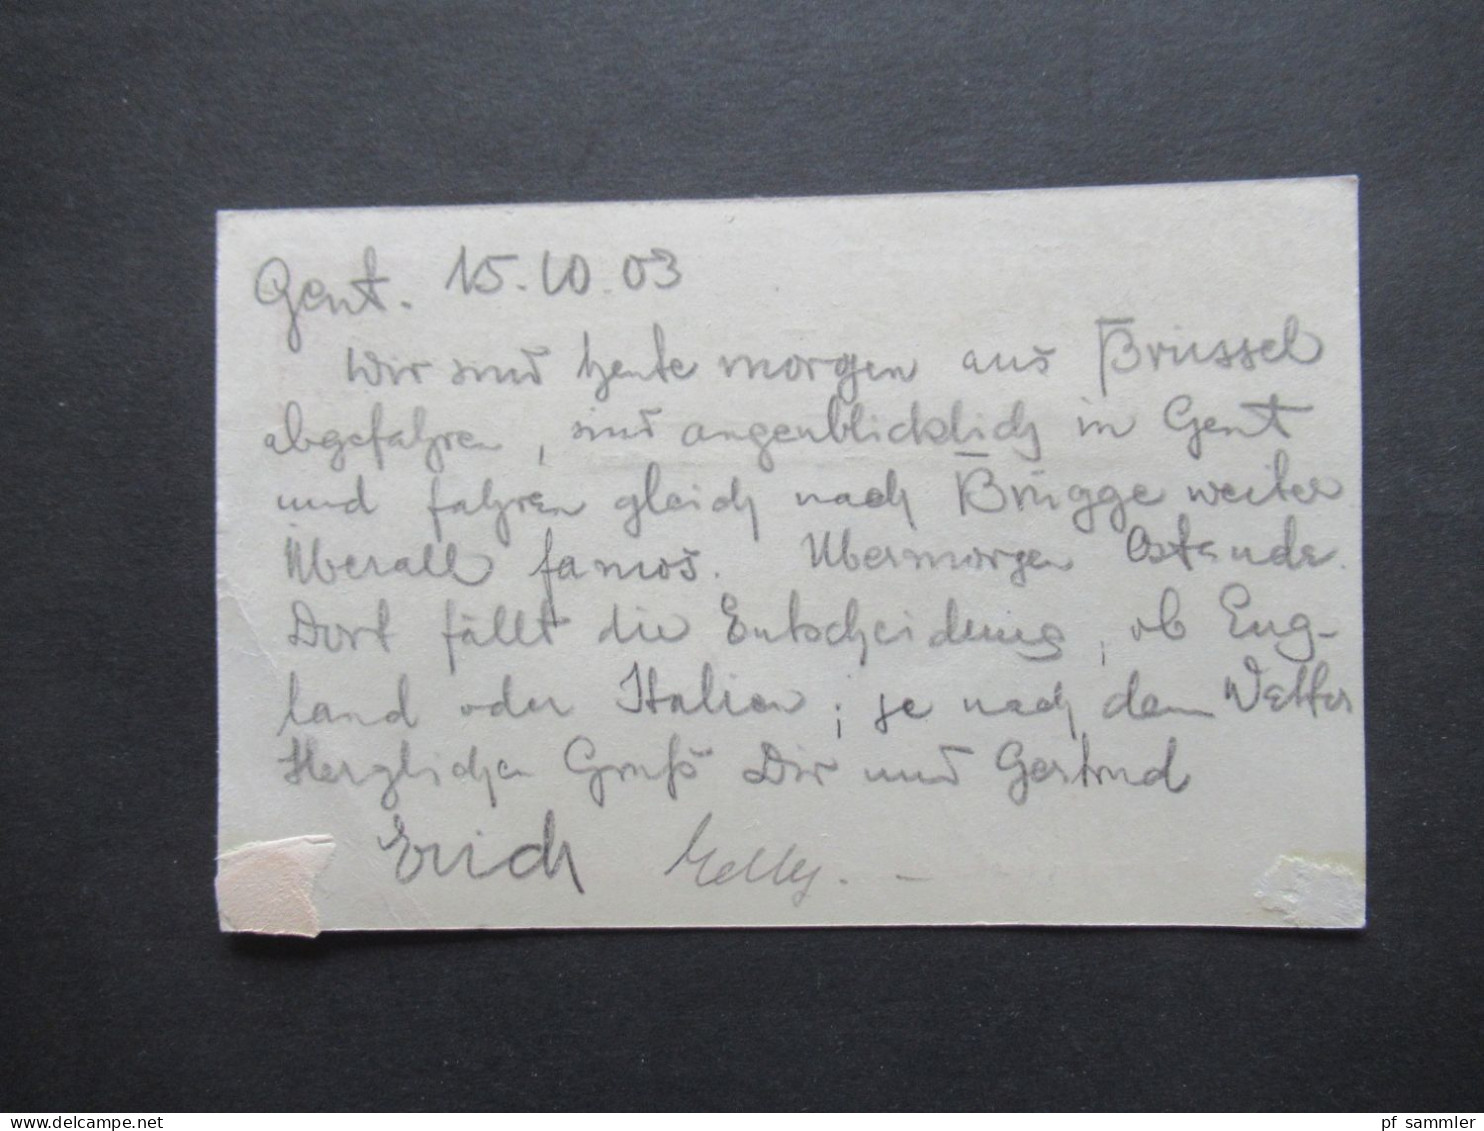 Gent. 15.10.03
Wir sind heute morgen aus Brüssel
abgefahren, sind augenblicklich in Gent
und fahren gleich nach Brügge weiter
Überall famos. Übermorgen Ostende.
Dort fällt die Entscheidung, ob Eng-
land oder Italien; je nach dem Wetter
Herzlichen Gruß Dir und Gertrud
Erich
delcampe.net
pf_sammler